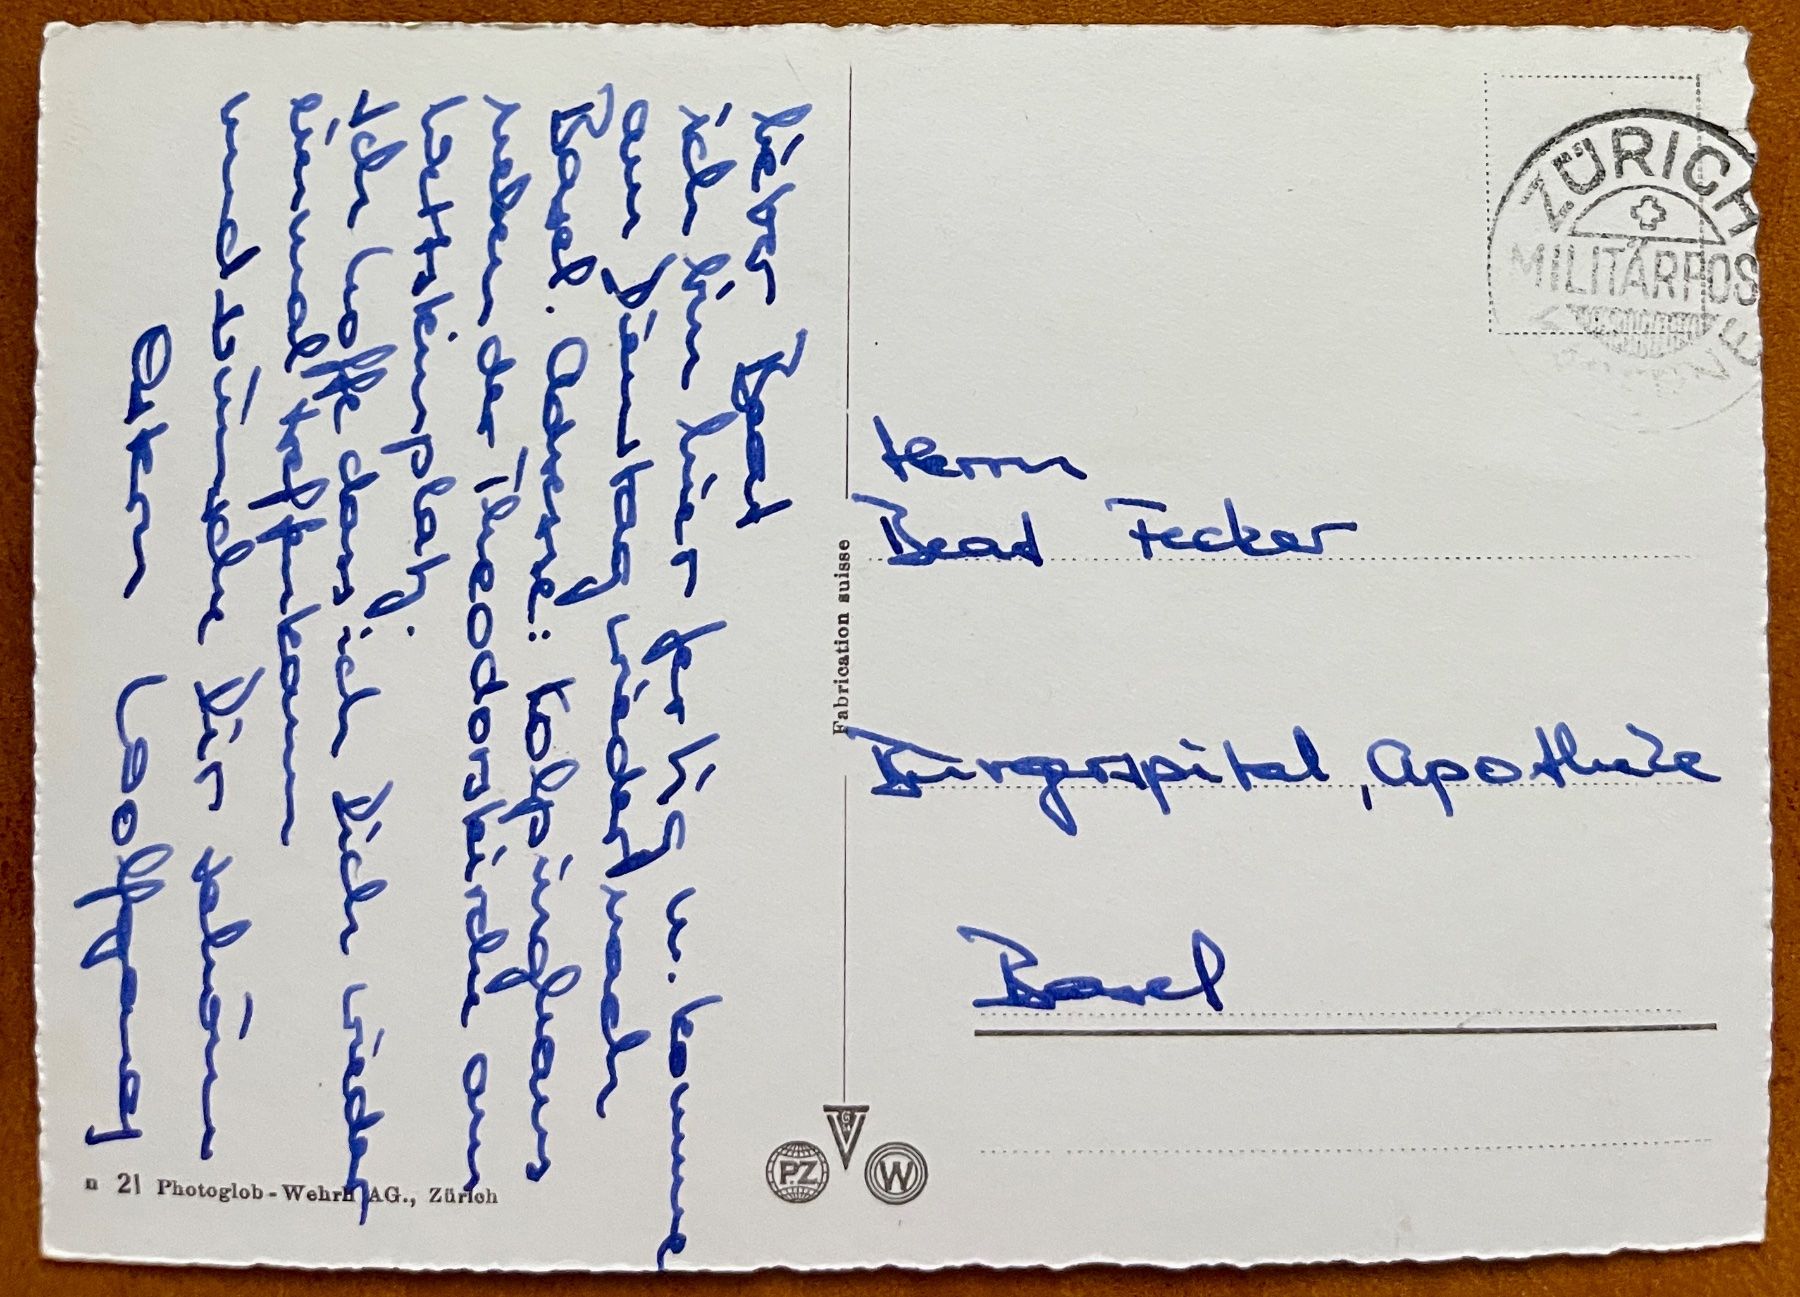 Lieber Beat
ich bin hier fertig u. komme
am Dienstag wieder nach
Basel. Adresse: Kolpinghaus
neben der Theodorskirche am
Wettsteinplatz.
Ich hoffe dass ich Dich wieder
einmal treffen kann
und wünsche Dir schöne
Ostern Wolfgang
n 21 Photoglob-Wehrli AG., Zürich
Fabrication suisse
VG
PZ
W
ZÜRICH
MILITÄRPOS
Herrn
Beat Fecker
Bürgerspital, Apotheke
Basel